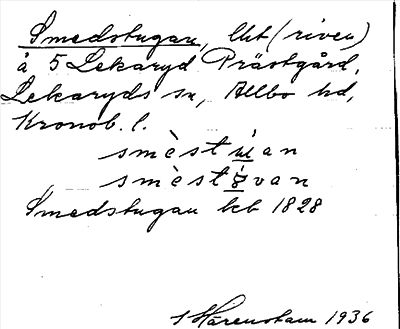 Smedstugan, lht (riven)
å 5 Lekaryd Prästgård,
Lekaryds sn, Allbo hd,
Kronob. l.
smèstùan
smèst
Smedstugan lht 1828
1936